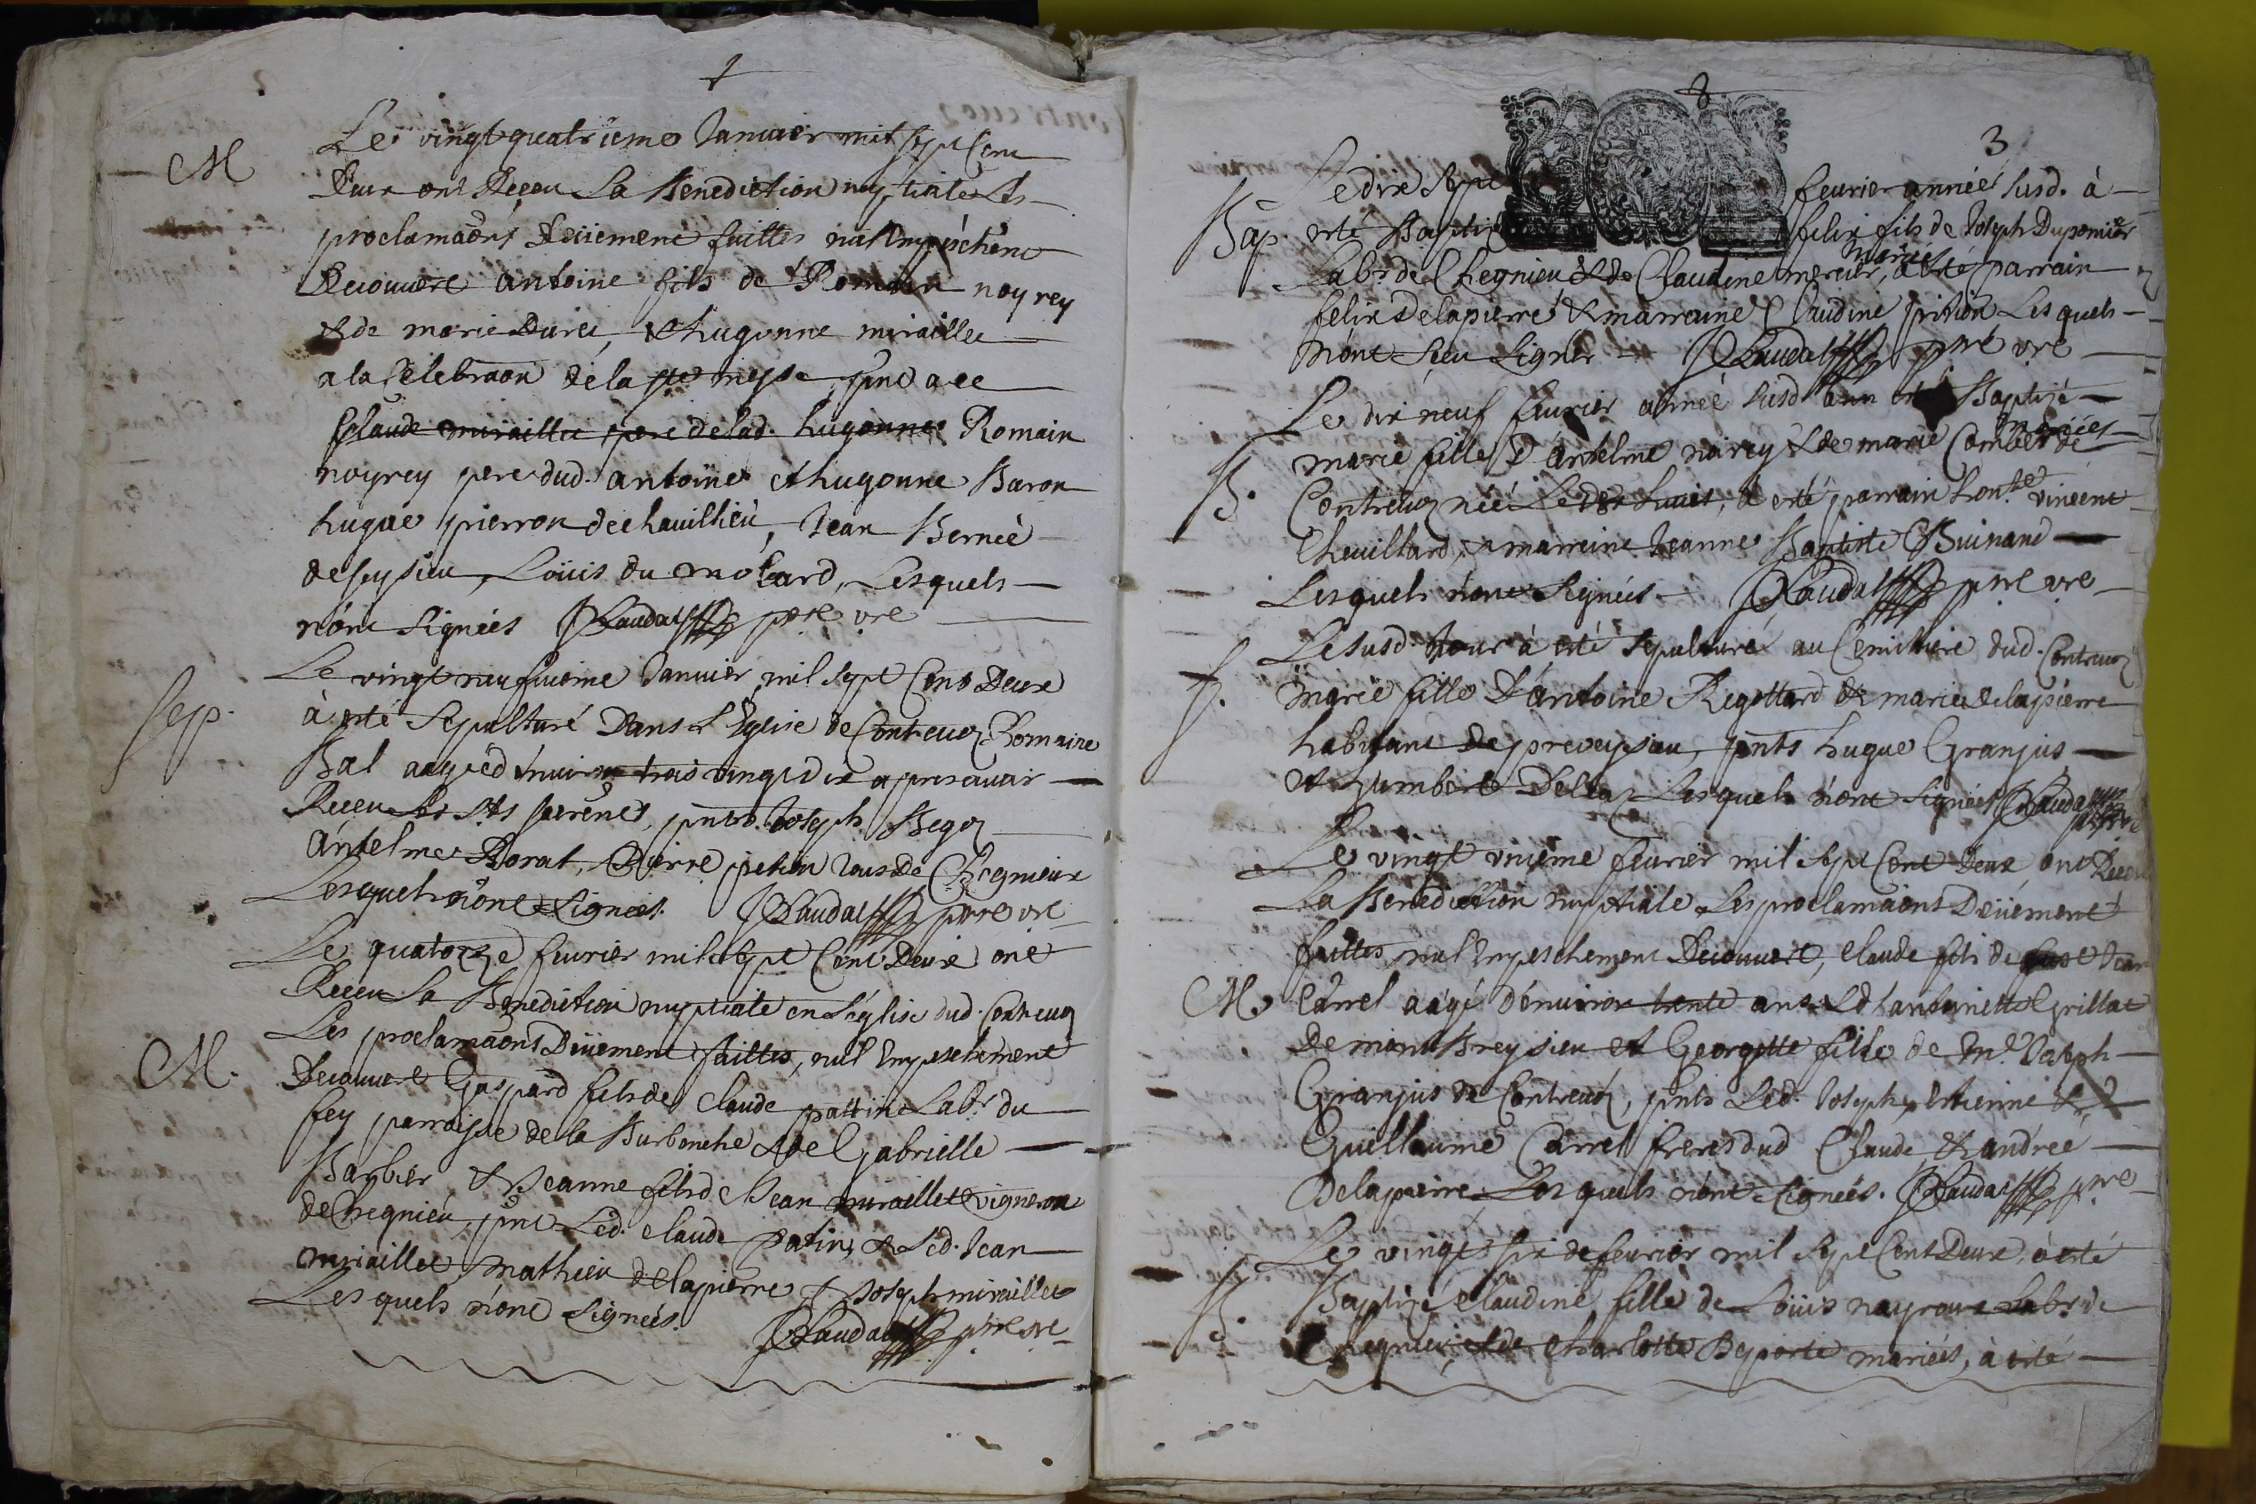 M
Le vingt quatrieme Janvier mil sept Cent
Deux ont Receu La Benediction nuptiale Les
proclamaõns Deüement faittes nul Empéschent
Decouuert antoine fils de Romain noyrey
& de marie Duret, & hugonne miraillet
a la Celebraõn de la ste messe, pnt a ce
Claude miraillet pere de lad. hugonne Romain
noyrey pere dud. antoine et hugonne Baron
hugue pierron de chauillieu, Jean Bernée
de seysieu, Loüis du molard, Lesquels
n'ont signées Daudat pbre vre
Sep.
Le vingt neufuieme Janvier mil sept Cens Deux
à esté Sepulturé Dans L'Eglise de Contreuoz Romaine
Bal aagée d'enuiron trois vingt Dix apres auoir
Receu les Sts. sacrents, pnts. Joseph Begoz
Anselme Borat, Pierre petion tous de Chegnieux
Lesquels n'ont signées. Daudat pbre vre
Le quatorze feurier mil sept Cent Deux ont
Receu La Benediction nuptiale en L'église dud. Contreuoz
M.
Les proclamaõns Deüement faittes, nul Empeschement
Decouuert Gaspard fils de Claude pattin Labr. du
fey parroisse de la Burbanche & de Gabrielle
Barbier & Jeanne fils de Jean miraillet vigneron
de Chegnieu, pnt Led. Claude patin & Led. Jean
miraillet, mathieu delapierre & Joseph miraillet
Lesquels n'ont signées.
Daudat pbre vre
8
3
Bap.
Le dix sept feurier année susd. à
esté Baptisé felix fils de Joseph Dupomier
Labr. de Chegnieu & de Claudine mercier, mariés à esté parrain
felix Delapierre & marraine Claudine Lesquels
n'ont sceu signer Daudat pbre vre
Le dix neuf feurier année susd a esté Baptisé
B.
marie fille d'Anselme noirey & de marie Combet mariées de
Contreuoz née, à esté parrain honble vincent
Cheuillard, & marreine Jeanne Baptiste Guinand
Lesquels n'ont signées Daudat pbre vre
S.
Le susd. Jour à esté sepulturé au Cemittiere dud. Contreuoz
marie fille d'Antoine Regottard & de marie delapierre
habitant de preveysieu, pnts hugue Granjus
& humbert Dellaz Lesquels n'ont signées Daudat
pbre vre
Le vingt vnieme feurier mil sept Cent Deux ont Receu
La Benediction nuptiale Les proclamaõns Deüement
faittes nul Empeschement Decouuert, Claude fils de Jean
M.
Carrel aagé d'enuiron trente ans & d'anthoinette Grillat
de montbreysieu et Georgette fille de Me. Joseph
Granjus de Contreuoz, pnts Led. Joseph, Estienne &
Guillaume Carrel freres dud Claude, & andrée
Delapierre Lesquels n'ont signées. Daudat pbre
Le vingt six de feurier mil sept Cent Deux, à esté
B.
Baptisé Claudine fille de Loüis nayroux Labr. de
Chegnieu, & de Charlotte Beporte mariées, à esté